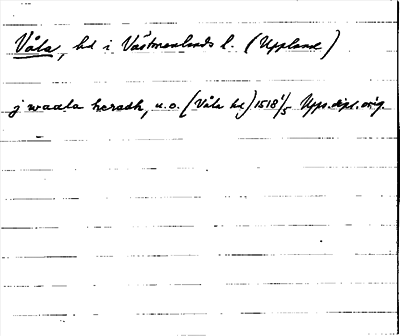 Våla, hd i Västmanlands l. (Uppland)
j waala heredh, u.o. (Våla hd) 1518 1/5 Upps. dipl. orig.